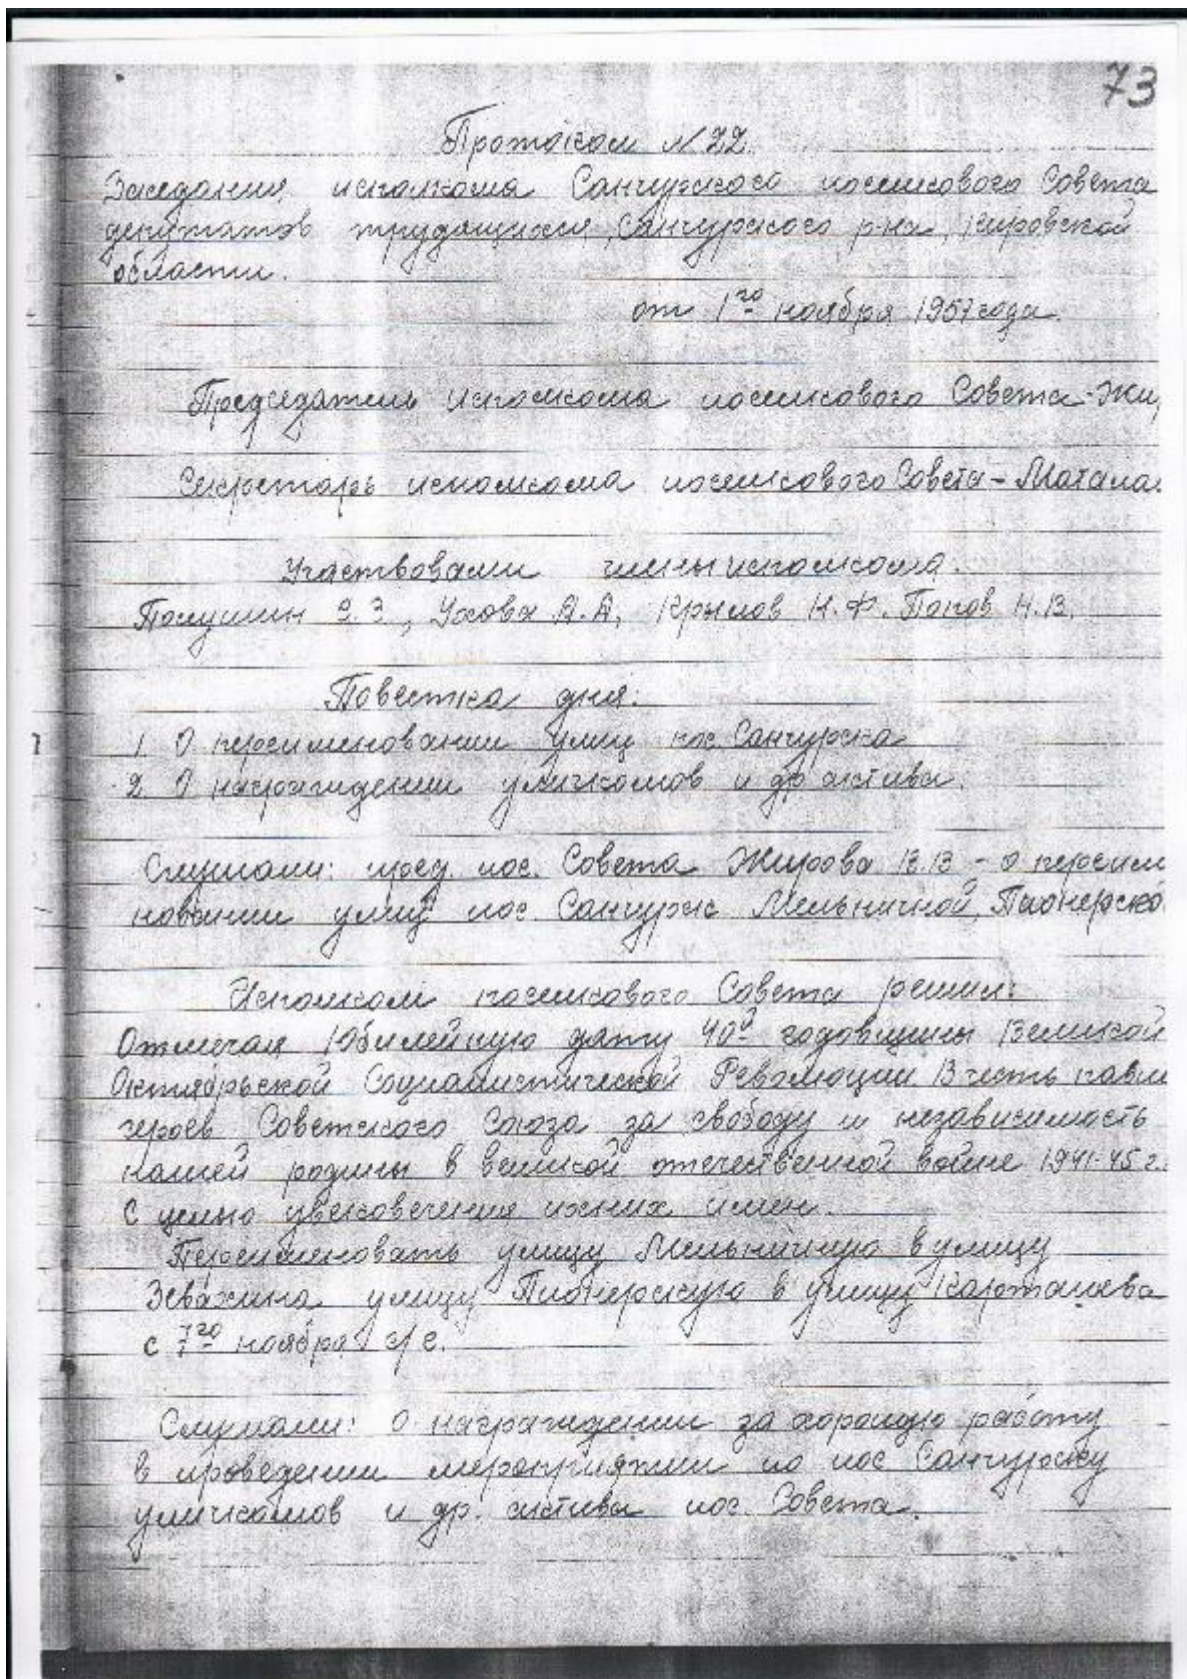 73
Протокол N 22.
Заседания исполкома Санчурского поселкового Совета
депутатов трудящихся, Санчурского р-на, Кировской
области.
от 1го ноября 1957 года.
Председатель исполкома поселкового Совета - Жи
Секретарь исполкома поселкового Совета - Матала
Участвовали члены исполкома:
Полушин З.З, Ухова А.А, Крылов Н.Ф. Попов Н.В.
Повестка дня:
1. О переименовании улиц пос. Санчурска
2. О награждении уличкомов и др актива.
Слушали: пред. пос. Совета Жирова В.В - о переим
новании улиц пос. Санчурск Мельничной, Пионерско
Исполком поселкового Совета решил:
Отмечая Юбилейную дату 40й годовщины Великой
Октябрьской Социалистической Революции В честь павш
героев Советского Союза за свободу и независимость
нашей родины в великой отечественной войне 1941-45 г.
С целью увековечения ихних имен.
Переименовать улицу Мельничную в улицу
Зевахина улицу Пионерскую в улицу Карташева
с 7го ноября с/г.
Слушали: О награждении за хорошую работу
в проведении мероприятии по пос Санчурску
уличкомов и др. актива пос. Совета.